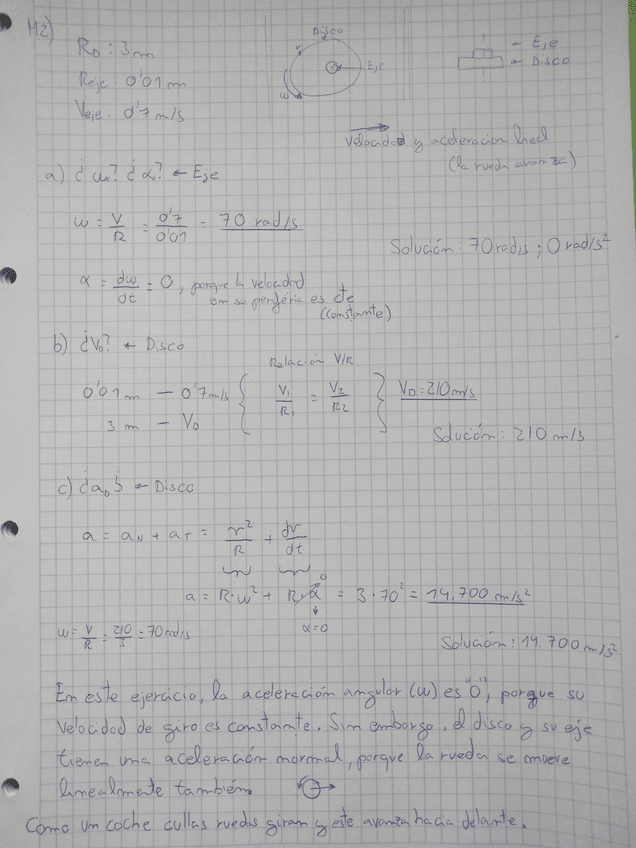 M2)
R_D: 3m
Reje: 0'01 m
Veje: 0'7 m/s
Disco
r
Eje
ω
← Eje
← Disco
Velocidad y aceleración lineal
(la rueda avanza)
a) ¿ω? ¿α? ← Eje
ω = V/R = 0'7/0'01 = 70 rad/s
Solución: 70 rad/s ; 0 rad/s²
α = dω/dt = 0, porque la velocidad
en su periferia es cte
(constante)
b) ¿V_D? ← Disco
Relación V/R
0'01 m — 0'7 m/s { V₁/R₁ = V₂/R₂ } V_D = 210 m/s
3 m — V_D
Solución: 210 m/s
c) ¿a_D? ← Disco
a = a_N + a_T = v²/R + dv/dt
a = R·ω² + R·α = 3·70² = 14.700 m/s²
0
α = 0
ω = V/R = 210/3 = 70 rad/s
Solución: 14.700 m/s²
En este ejercicio, la aceleración angular (ω) es "0", porque su
velocidad de giro es constante. Sin embargo, el disco y su eje
tienen una aceleración normal, porque la rueda se mueve
linealmente también.
Como un coche cullas ruedas giran y este avanza hacia delante.